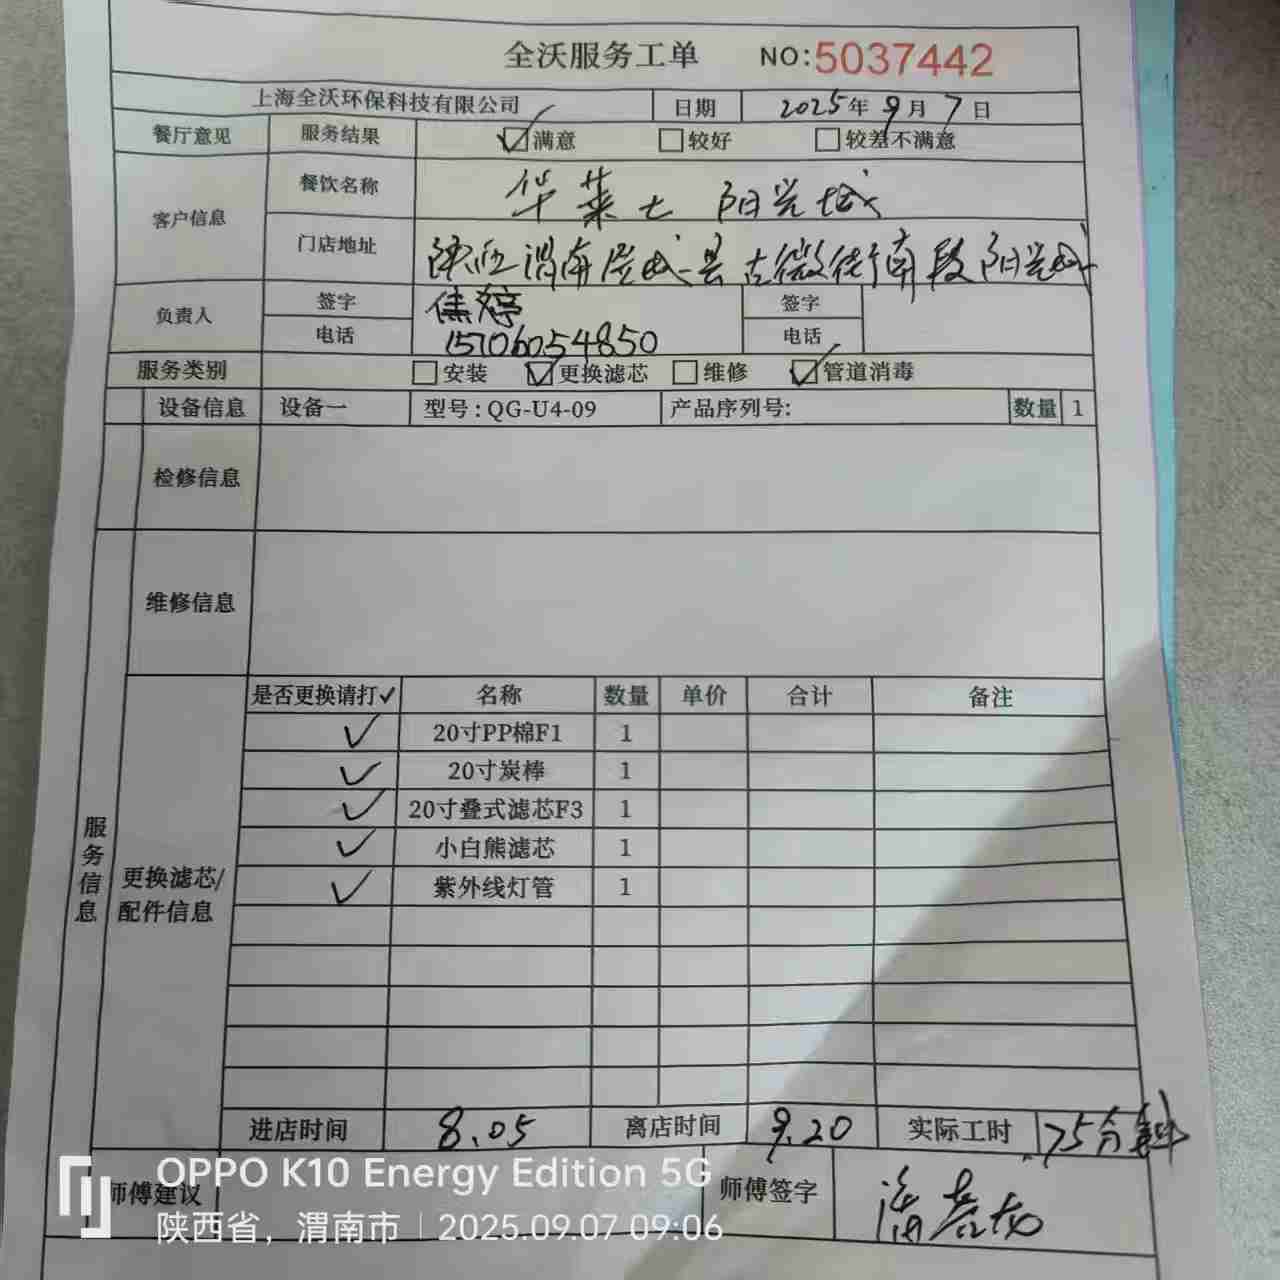 全沃服务工单 NO:5037442
上海全沃环保科技有限公司 日期 2025年9月7日
餐厅意见 服务结果 满意 较好 较差不满意
客户信息 餐饮名称 华莱士 阳光城
门店地址 陕西渭南澄城县古徵街南段阳光城
负责人 签字 焦婷 签字
电话 15706054850 电话
服务类别 安装 更换滤芯 维修 管道消毒
设备信息 设备一 型号:QG-U4-09 产品序列号: 数量 1
检修信息
维修信息
服务信息
更换滤芯/
配件信息
是否更换请打✓ 名称 数量 单价 合计 备注
✓ 20寸PP棉F1 1
✓ 20寸炭棒 1
✓ 20寸叠式滤芯F3 1
✓ 小白熊滤芯 1
✓ 紫外线灯管 1
进店时间 8.05 离店时间 9.20 实际工时 75分钟
师傅建议 师傅签字
OPPO K10 Energy Edition 5G
陕西省，渭南市 | 2025.09.07 09:06